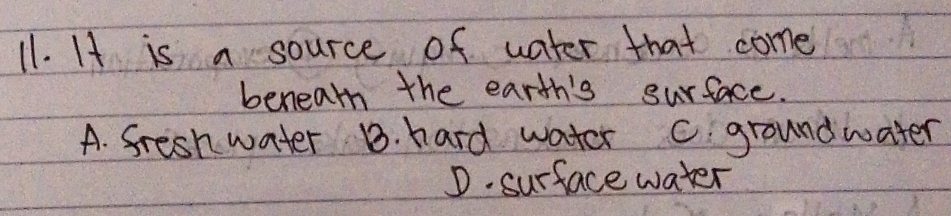 11. It is a source of water that come
beneath the earth's surface.
A. freshwater B. hard water C. groundwater
D. surface water